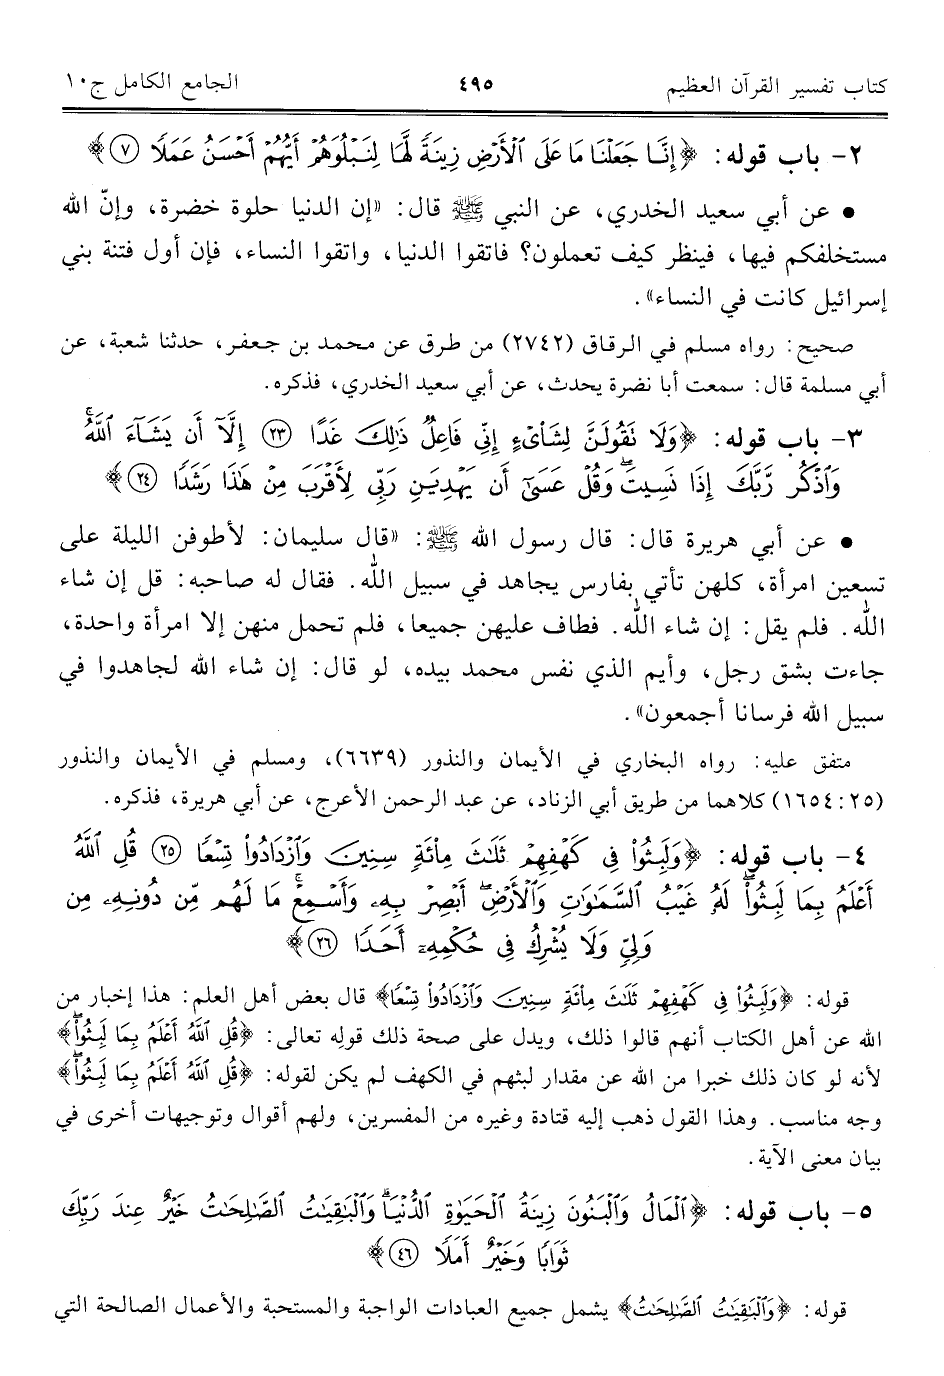 كتاب تفسير القرآن العظيم ٤٩٥ الجامع الكامل ج١٠
٢- باب قوله: ﴿إِنَّا جَعَلْنَا مَا عَلَى ٱلْأَرْضِ زِينَةً لَّهَا لِنَبْلُوَهُمْ أَيُّهُمْ أَحْسَنُ عَمَلًا ٧﴾
• عن أبي سعيد الخدري، عن النبي ﷺ قال: «إن الدنيا حلوة خضرة، وإنّ الله
مستخلفكم فيها، فينظر كيف تعملون؟ فاتقوا الدنيا، واتقوا النساء، فإن أول فتنة بني
إسرائيل كانت في النساء».
صحيح: رواه مسلم في الرقاق (٢٧٤٢) من طرق عن محمد بن جعفر، حدثنا شعبة، عن
أبي مسلمة قال: سمعت أبا نضرة يحدث، عن أبي سعيد الخدري، فذكره.
٣- باب قوله: ﴿وَلَا تَقُولَنَّ لِشَا۟ىْءٍ إِنِّى فَاعِلٌ ذَٰلِكَ غَدًا ٢٣ إِلَّآ أَن يَشَآءَ ٱللَّهُۚ
وَٱذْكُر رَّبَّكَ إِذَا نَسِيتَ وَقُلْ عَسَىٰٓ أَن يَهْدِيَنِ رَبِّى لِأَقْرَبَ مِنْ هَٰذَا رَشَدًا ٢٤﴾
• عن أبي هريرة قال: قال رسول الله ﷺ: «قال سليمان: لأطوفن الليلة على
تسعين امرأة، كلهن تأتي بفارس يجاهد في سبيل الله. فقال له صاحبه: قل إن شاء
الله. فلم يقل: إن شاء الله. فطاف عليهن جميعا، فلم تحمل منهن إلا امرأة واحدة،
جاءت بشق رجل، وأيم الذي نفس محمد بيده، لو قال: إن شاء الله لجاهدوا في
سبيل الله فرسانا أجمعون».
متفق عليه: رواه البخاري في الأيمان والنذور (٦٦٣٩)، ومسلم في الأيمان والنذور
(١٦٥٤:٢٥) كلاهما من طريق أبي الزناد، عن عبد الرحمن الأعرج، عن أبي هريرة، فذكره.
٤- باب قوله: ﴿وَلَبِثُوا۟ فِى كَهْفِهِمْ ثَلَٰثَ مِا۟ئَةٍ سِنِينَ وَٱزْدَادُوا۟ تِسْعًا ٢٥ قُلِ ٱللَّهُ
أَعْلَمُ بِمَا لَبِثُوا۟ۖ لَهُۥ غَيْبُ ٱلسَّمَٰوَٰتِ وَٱلْأَرْضِۖ أَبْصِرْ بِهِۦ وَأَسْمِعْۚ مَا لَهُم مِّن دُونِهِۦ مِن
وَلِىٍّ وَلَا يُشْرِكُ فِى حُكْمِهِۦٓ أَحَدًا ٢٦﴾
قوله: ﴿وَلَبِثُوا۟ فِى كَهْفِهِمْ ثَلَٰثَ مِا۟ئَةٍ سِنِينَ وَٱزْدَادُوا۟ تِسْعًا﴾ قال بعض أهل العلم: هذا إخبار من
الله عن أهل الكتاب أنهم قالوا ذلك، ويدل على صحة ذلك قوله تعالى: ﴿قُلِ ٱللَّهُ أَعْلَمُ بِمَا لَبِثُوا۟ۖ﴾
لأنه لو كان ذلك خبرا من الله عن مقدار لبثهم في الكهف لم يكن لقوله: ﴿قُلِ ٱللَّهُ أَعْلَمُ بِمَا لَبِثُوا۟ۖ﴾
وجه مناسب. وهذا القول ذهب إليه قتادة وغيره من المفسرين، ولهم أقوال وتوجيهات أخرى في
بيان معنى الآية.
٥- باب قوله: ﴿ٱلْمَالُ وَٱلْبَنُونَ زِينَةُ ٱلْحَيَوٰةِ ٱلدُّنْيَاۖ وَٱلْبَٰقِيَٰتُ ٱلصَّٰلِحَٰتُ خَيْرٌ عِندَ رَبِّكَ
ثَوَابًا وَخَيْرٌ أَمَلًا ٤٦﴾
قوله: ﴿وَٱلْبَٰقِيَٰتُ ٱلصَّٰلِحَٰتُ﴾ يشمل جميع العبادات الواجبة والمستحبة والأعمال الصالحة التي